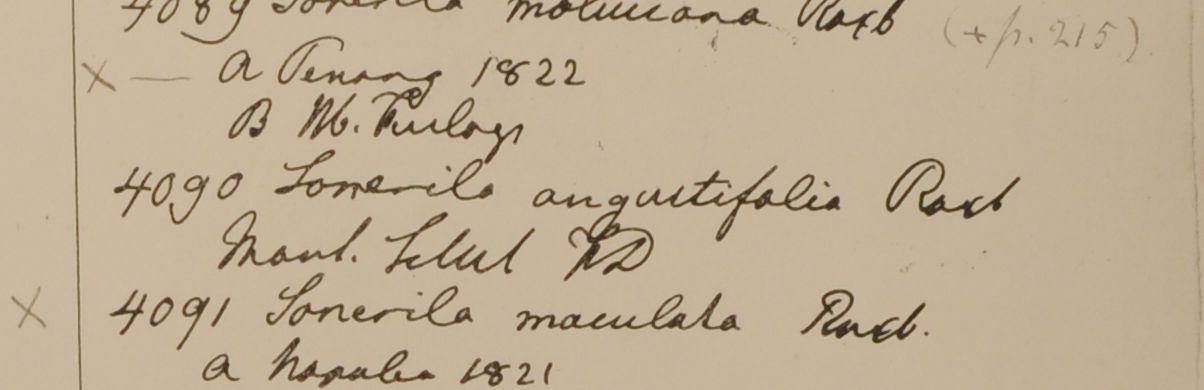 4089 Sonerila moluccana Roxb (+ p. 215)
× — A Penang 1822
B M.
4090 Sonerila angustifolia Roxb
Mont. Silhet FD
× 4091 Sonerila maculata Roxb.
A Napalia 1821